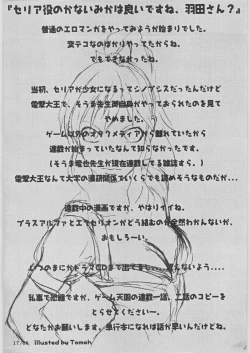 『セリア役のかないみかは良いですね、羽田さん？』
普通のエロマンガをやってみようが始まりでした。
変テコなのばかりやってたからね。
でもできなかったね。
当初、セリアが少女になるってシノプシスだったんだけど
電撃大王で、そうま先生がやっておられたのを見て
やめました。
ゲーム以外のオタクメディアから離れていたから
連載が始まっていたなんて知らなかったです。
（そうま竜也先生が現在連載してる雑誌すら。）
電撃大王なんて大学の漫研関係でいくらでも読めそうなものだが...
連載中の漫画ですが、やはりイイね。
プラスアルファとエクセリオンがどう絡むのか全然わかんないが、
おもしろーい。
いつのまにかドラマCDまで出てまし...
私事で恐縮ですが、ゲーム天国の連載一話、二話のコピーを
とらせてくださいー。
どなたかお願いします。単行本になれば話が早いんだけどね。
illusted by Tomoh